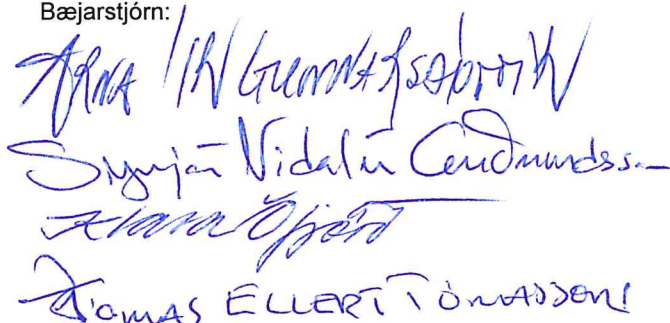 Bæjarstjórn:
ARNA ÍR GUNNARSDÓTTIR
Sigurjón Vídalín Guðmundss
Klara Öfjörð
TÓMAS ELLERT TÓMASSON